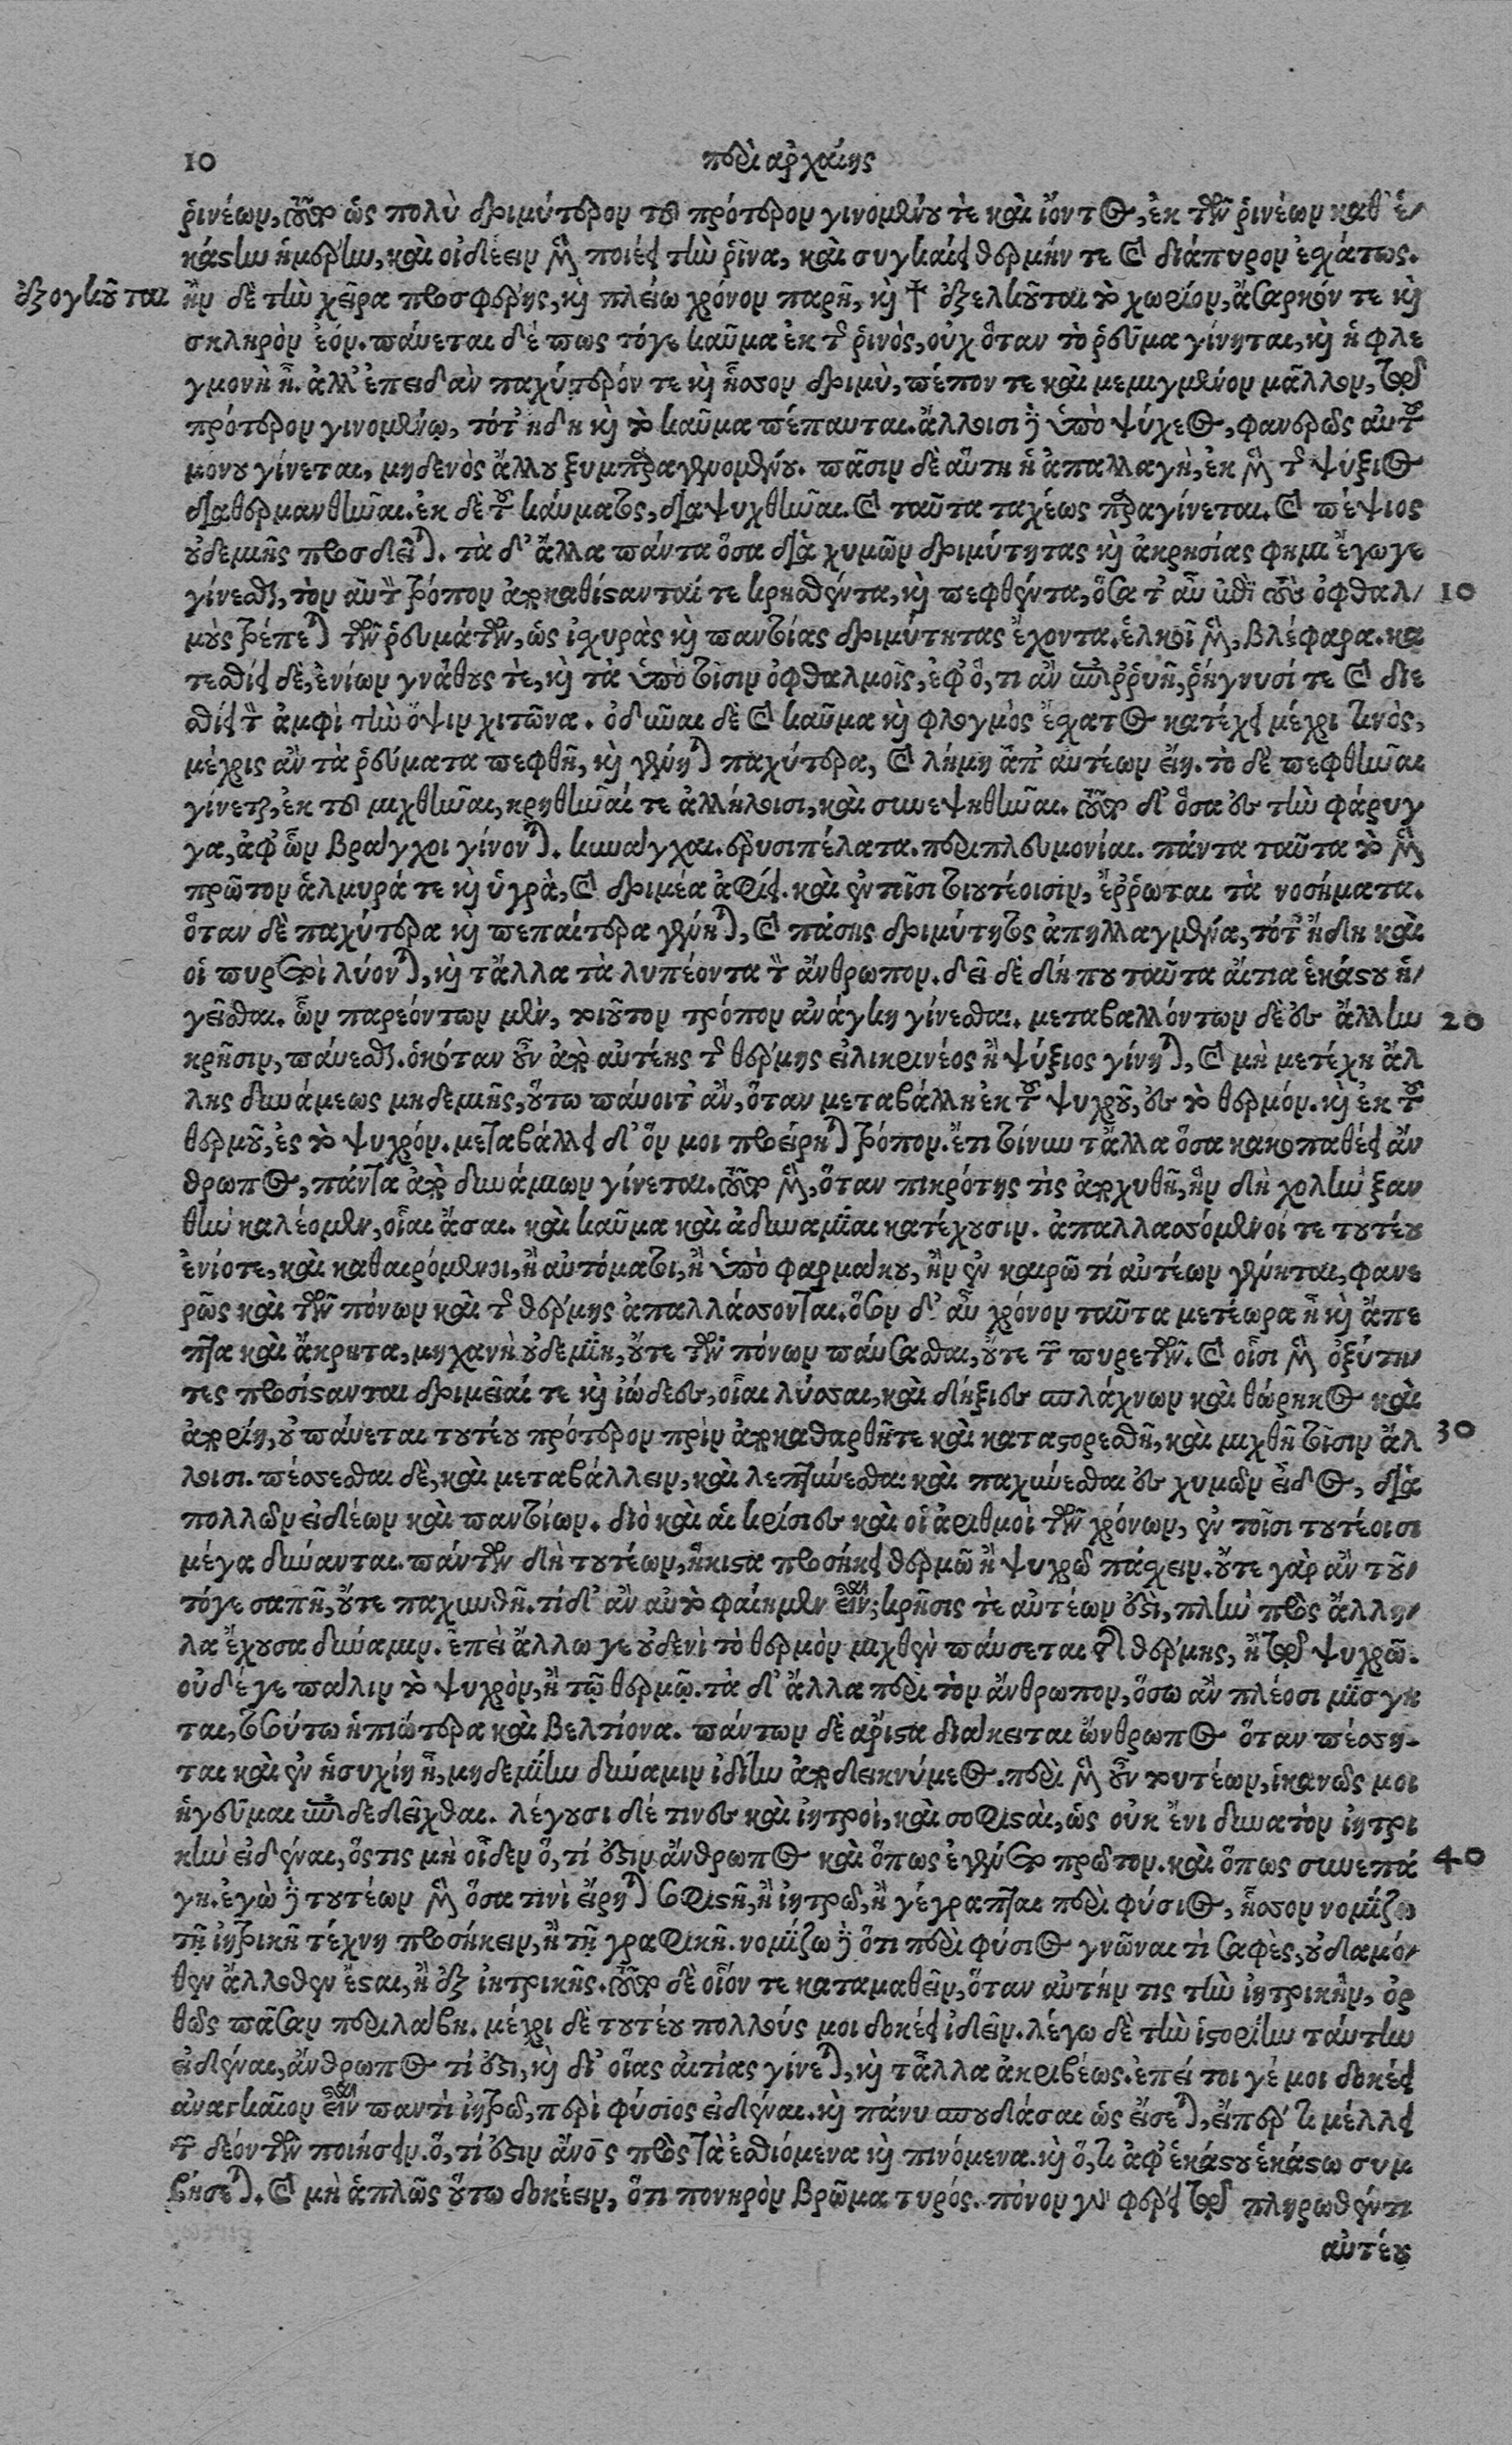 10 περὶ ἀρχαίης
ῥινέων, τοῦτο ὡς πολὺ δριμύτερον τοῦ πρότερον γινομένου τὲ καὶ ἰόντος, ἐκ τῶν ῥινέων καθ' ἑ-
κάστην ἡμέρην, καὶ οἰδέειν μὲν ποιέει τὴν ῥῖνα, καὶ συγκαίει θερμήν τε καὶ διάπυρον ἐσχάτως.
ἐξογκοῦται ἢν δὲ τὴν χεῖρα προσφέρῃς, καὶ πλείω χρόνον παρῇ, καὶ † ἐξελκοῦται τὸ χωρίον, ἄσαρκόν τε καὶ
σκληρὸν ἐόν. παύεται δέ πως τόγε καῦμα ἐκ τῆς ῥινὸς, οὐχ ὅταν τὸ ῥεῦμα γίνηται, καὶ ἡ φλε
γμονὴ ᾖ. ἀλλ' ἐπειδὰν παχύτερόν τε καὶ ἧσσον δριμὺ, πέπον τε καὶ μεμιγμένον μᾶλλον, τοῦ
πρότερον γινομένῳ, τότ' ἤδη καὶ τὸ καῦμα πέπαυται. ἄλλοισι δὲ ὑπὸ ψύχεος, φανερῶς αὐτοῦ
μόνου γίνεται, μηδενὸς ἄλλου ξυμπαραγενομένου. πᾶσιν δὲ αὕτη ἡ ἀπαλλαγὴ, ἐκ μὲν τῆς ψύξιος
διαθερμανθῆναι. ἐκ δὲ τοῦ καύματος, διαψυχθῆναι. καὶ ταῦτα ταχέως παραγίνεται. καὶ πέψιος
οὐδεμιῆς προσδεῖται. τὰ δ' ἄλλα πάντα ὅσα διὰ χυμῶν δριμύτητας καὶ ἀκρησίας φημὶ ἔγωγε
γίνεσθαι, τὸν αὐτὸν τρόπον ἀποκαθίστανταί τε κρηθέντα, καὶ πεφθέντα, ὅσα τ' αὖ ἐπὶ τοὺς ὀφθαλ- 10
μοὺς τρέπεται τῶν ῥευμάτων, ὡς ἰσχυρὰς καὶ παντοίας δριμύτητας ἔχοντα. ἑλκοῖ μὲν, βλέφαρα. κα
τεσθίει δὲ, ἐνίων γνάθους τὲ, καὶ τὰ ὑπὸ τοῖσιν ὀφθαλμοῖς, ἐφ' ὅ, τι ἂν ἐπιῤῥυῇ, ῥήγνυσί τε καὶ διε
σθίει τὸν ἀμφὶ τὴν ὄψιν χιτῶνα. ὀδῦναι δὲ καὶ καῦμα καὶ φλογμὸς ἔσχατος κατέχει μέχρι τινὸς,
μέχρις ἂν τὰ ῥεύματα πεφθῇ, καὶ γένηται παχύτερα, καὶ λήμη ἀπ' αὐτέων εἴη. τὸ δὲ πεφθῆναι
γίνεται, ἐκ τοῦ μιχθῆναι, κρηθῆναί τε ἀλλήλοισι, καὶ συνεψηθῆναι. τοῦτο δ' ὅσα ἐς τὴν φάρυγ
γα, ἀφ' ὧν βράγχοι γίνονται. κυνάγχαι. ἐρυσιπέλατα. περιπλευμονίαι. πάντα ταῦτα τὸ μὲν
πρῶτον ἁλμυρά τε καὶ ὑγρὰ, καὶ δριμέα ἀφίει. καὶ ἐν τοῖσι τοιουτέοισιν, ἔῤῥωται τὰ νοσήματα.
ὅταν δὲ παχύτερα καὶ πεπαίτερα γένηται, καὶ πάσης δριμύτητος ἀπηλλαγμένα, τότ' ἤδη καὶ
οἱ πυρετοὶ λύονται, καὶ τἄλλα τὰ λυπέοντα τὸν ἄνθρωπον. δεῖ δὲ δή που ταῦτα αἴτια ἑκάστου ἡ-
γεῖσθαι. ὧν παρεόντων μὲν, τοιοῦτον τρόπον ἀνάγκη γίνεσθαι. μεταβαλλόντων δὲ ἐς ἄλλην 20
κρῆσιν, παύεσθαι. ὁκόταν οὖν ἀπὸ αὐτέης τῆς θέρμης εἰλικρινέος ἢ ψύξιος γίνηται, καὶ μὴ μετέχῃ ἄλ
λης δυνάμεως μηδεμιῆς, οὕτω παύοιτ' ἂν, ὅταν μεταβάλλῃ ἐκ τοῦ ψυχροῦ, ἐς τὸ θερμόν. καὶ ἐκ τοῦ
θερμοῦ, ἐς τὸ ψυχρόν. μεταβάλλει δ' ὅν μοι προείρηται τρόπον. ἔτι τοίνυν τἄλλα ὅσα κακοπαθέει ἄν
θρωπος, πάντα ἀπὸ δυναμίων γίνεται. τοῦτο μὲν, ὅταν πικρότης τὶς ἀποχυθῇ, ἣν δὴ χολὴν ξαν
θὴν καλέομεν, οἷαι ἄσαι. καὶ καῦμα καὶ ἀδυναμίαι κατέχουσιν. ἀπαλλασσόμενοί τε τουτέου
ἐνίοτε, καὶ καθαιρόμενοι, ἢ αὐτόματοι, ἢ ὑπὸ φαρμάκου, ἢν ἐν καιρῶ τί αὐτέων γένηται, φανε
ρῶς καὶ τῶν πόνων καὶ τῆς θέρμης ἀπαλλάσσονται. ὅσον δ' αὖ χρόνον ταῦτα μετέωρα ᾖ καὶ ἄπε
πτα καὶ ἄκρητα, μηχανὴ οὐδεμίη, οὔτε τῶν πόνων παύσασθαι, οὔτε τῶν πυρετῶν. καὶ οἷσι μὲν ὀξύτη-
τες προσίστανται δριμεῖαί τε καὶ ἰώδεες, οἷαι λύσσαι, καὶ δήξιες σπλάχνων καὶ θώρηκος καὶ
ἀπορίη, οὐ παύεται τουτέου πρότερον πρὶν ἀποκαθαρθῇτε καὶ καταστορεσθῇ, καὶ μιχθῇ τοῖσιν ἄλ 30
λοισι. πέσσεσθαι δὲ, καὶ μεταβάλλειν, καὶ λεπτύνεσθαι καὶ παχύνεσθαι ἐς χυμῶν εἶδος, διὰ
πολλῶν εἰδέων καὶ παντοίων. διὸ καὶ αἱ κρίσιες καὶ οἱ ἀριθμοὶ τῶν χρόνων, ἐν τοῖσι τουτέοισι
μέγα δύνανται. πάντων δὴ τουτέων, ἥκιστα προσήκει θερμῶ ἢ ψυχρῶ πάσχειν. οὔτε γὰρ ἂν τοῦ-
τόγε σαπῇ, οὔτε παχυνθῇ. τί δ' ἂν αὐτὸ φαίημεν εἶναι; κρῆσις τὲ αὐτέων ἐστι, πλὴν πρὸς ἄλλη-
λα ἔχουσα δύναμιν. ἐπεὶ ἄλλω γε οὐδενὶ τὸ θερμὸν μιχθὲν παύσεται τῆς θέρμης, ἢ τῷ ψυχρῶ.
οὐδέ γε πάλιν τὸ ψυχρὸν, ἢ τῷ θερμῷ. τὰ δ' ἄλλα περὶ τὸν ἄνθρωπον, ὅσω ἂν πλέοσι μίσγη
ται, τοσούτω ἠπιώτερα καὶ βελτίονα. πάντων δὲ ἄριστα διάκειται ὥνθρωπος ὅταν πέσση-
ται καὶ ἐν ἡσυχίῃ ᾖ, μηδεμίην δύναμιν ἰδίην ἀποδεικνύμενος. περὶ μὲν οὖν τουτέων, ἱκανῶς μοι
ἡγεῦμαι ἐπιδεδεῖχθαι. λέγουσι δέ τινες καὶ ἰητροὶ, καὶ σοφισταὶ, ὡς οὐκ ἔνι δυνατὸν ἰητρι
κὴν εἰδέναι, ὅστις μὴ οἶδεν ὅ, τί ἐστιν ἄνθρωπος καὶ ὅπως ἐγένετο πρῶτον. καὶ ὅπως συνεπά 40
γη. ἐγὼ δὲ τουτέων μὲν ὅσα τινὶ εἴρηται σοφιστῇ, ἢ ἰητρῶ, ἢ γέγραπται περὶ φύσιος, ἧσσον νομίζω
τῇ ἰητρικῇ τέχνη προσήκειν, ἢ τῇ γραφικῇ. νομίζω δὲ ὅτι περὶ φύσιος γνῶναι τὶ σαφὲς, οὐδαμό-
θεν ἄλλοθεν ἔσται, ἢ ἐξ ἰητρικῆς. τοῦτο δὲ οἷόν τε καταμαθεῖν, ὅταν αὐτήν τις τὴν ἰητρικὴν, ὀρ
θῶς πᾶσαν περιλάβῃ. μέχρι δὲ τουτέου πολλούς μοι δοκέει ἰδεῖν. λέγω δὲ τὴν ἱστορίην ταύτην
εἰδέναι, ἄνθρωπος τί ἐστι, καὶ δι' οἵας αἰτίας γίνεται, καὶ τἆλλα ἀκριβέως. ἐπεί τοι γέ μοι δοκέει
ἀναγκαῖον εἶναι παντὶ ἰητρῶ, περὶ φύσιος εἰδέναι. καὶ πάνυ σπουδάσαι ὡς εἴσεται, εἴπερ τι μέλλει
τῶν δεόντων ποιήσειν. ὅ, τί ἐστιν ἄνος πρὸς τὰ ἐσθιόμενα καὶ πινόμενα. καὶ ὅ, τι ἀφ' ἑκάστου ἑκάστω συμ
βήσεται. καὶ μὴ ἁπλῶς οὕτω δοκέειν, ὅτι πονηρὸν βρῶμα τυρός. πόνον γὰρ φέρει τῷ πληρωθέντι
αὐτέου